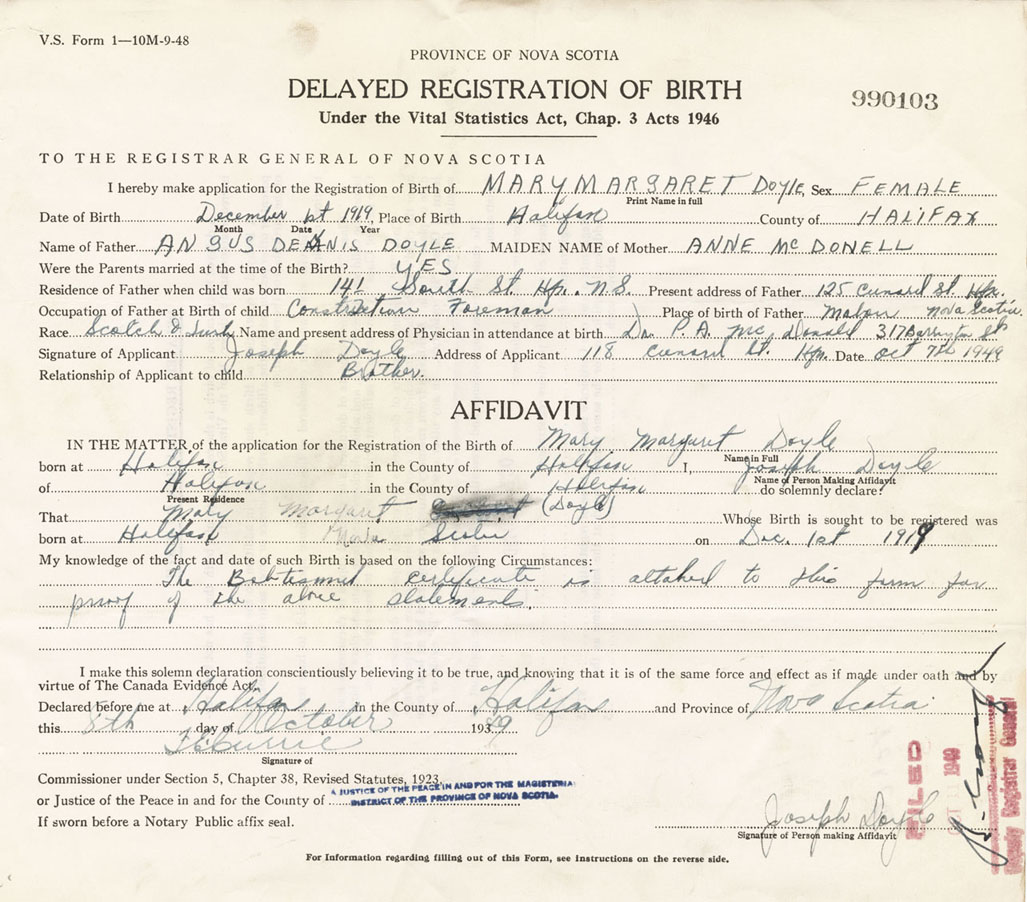 V.S. Form 1—10M-9-48
PROVINCE OF NOVA SCOTIA
DELAYED REGISTRATION OF BIRTH
990103
Under the Vital Statistics Act, Chap. 3 Acts 1946
TO THE REGISTRAR GENERAL OF NOVA SCOTIA
I hereby make application for the Registration of Birth of MARY MARGARET DOYLE, Sex FEMALE
Print Name in full
Date of Birth December 1st 1919, Place of Birth Halifax County of HALIFAX
Month Date Year
Name of Father ANGUS DENNIS DOYLE MAIDEN NAME of Mother ANNE McDONELL
Were the Parents married at the time of the Birth? YES
Residence of Father when child was born 141 South St Hfx. N.S. Present address of Father 125 Cunard St. Hfx.
Occupation of Father at Birth of child Construction Foreman Place of birth of Father Mabou Nova Scotia.
Race Scotch & Name and present address of Physician in attendance at birth Dr. P.A. McDonald 317 Barrington St
Signature of Applicant Joseph Doyle Address of Applicant 118 Cunard St. Hfx. Date Oct 7th 1949
Relationship of Applicant to child Brother.
AFFIDAVIT
IN THE MATTER of the application for the Registration of the Birth of Mary Margaret Doyle
Name in Full
born at Halifax in the County of Halifax I, Joseph Doyle
Name of Person Making Affidavit
of Halifax in the County of Halifax do solemnly declare:
Present Residence
That Mary Margaret (Doyle) Whose Birth is sought to be registered was
born at Halifax Nova Scotia on Dec. 1st 1919
My knowledge of the fact and date of such Birth is based on the following Circumstances:
The certificate is attached to this form for
proof of the above statements.
I make this solemn declaration conscientiously believing it to be true, and knowing that it is of the same force and effect as if made under oath and by
virtue of The Canada Evidence Act.
Declared before me at Halifax in the County of Halifax and Province of Nova Scotia
this 8th day of October 1939
Signature of
Commissioner under Section 5, Chapter 38, Revised Statutes, 1923.
or Justice of the Peace in and for the County of
A JUSTICE OF THE PEACE IN AND FOR THE MAGISTERIAL
DISTRICT OF THE PROVINCE OF NOVA SCOTIA.
If sworn before a Notary Public affix seal.
Joseph Doyle
Signature of Person making Affidavit
FILED
1949
Deputy Registrar General
For Information regarding filling out of this Form, see instructions on the reverse side.